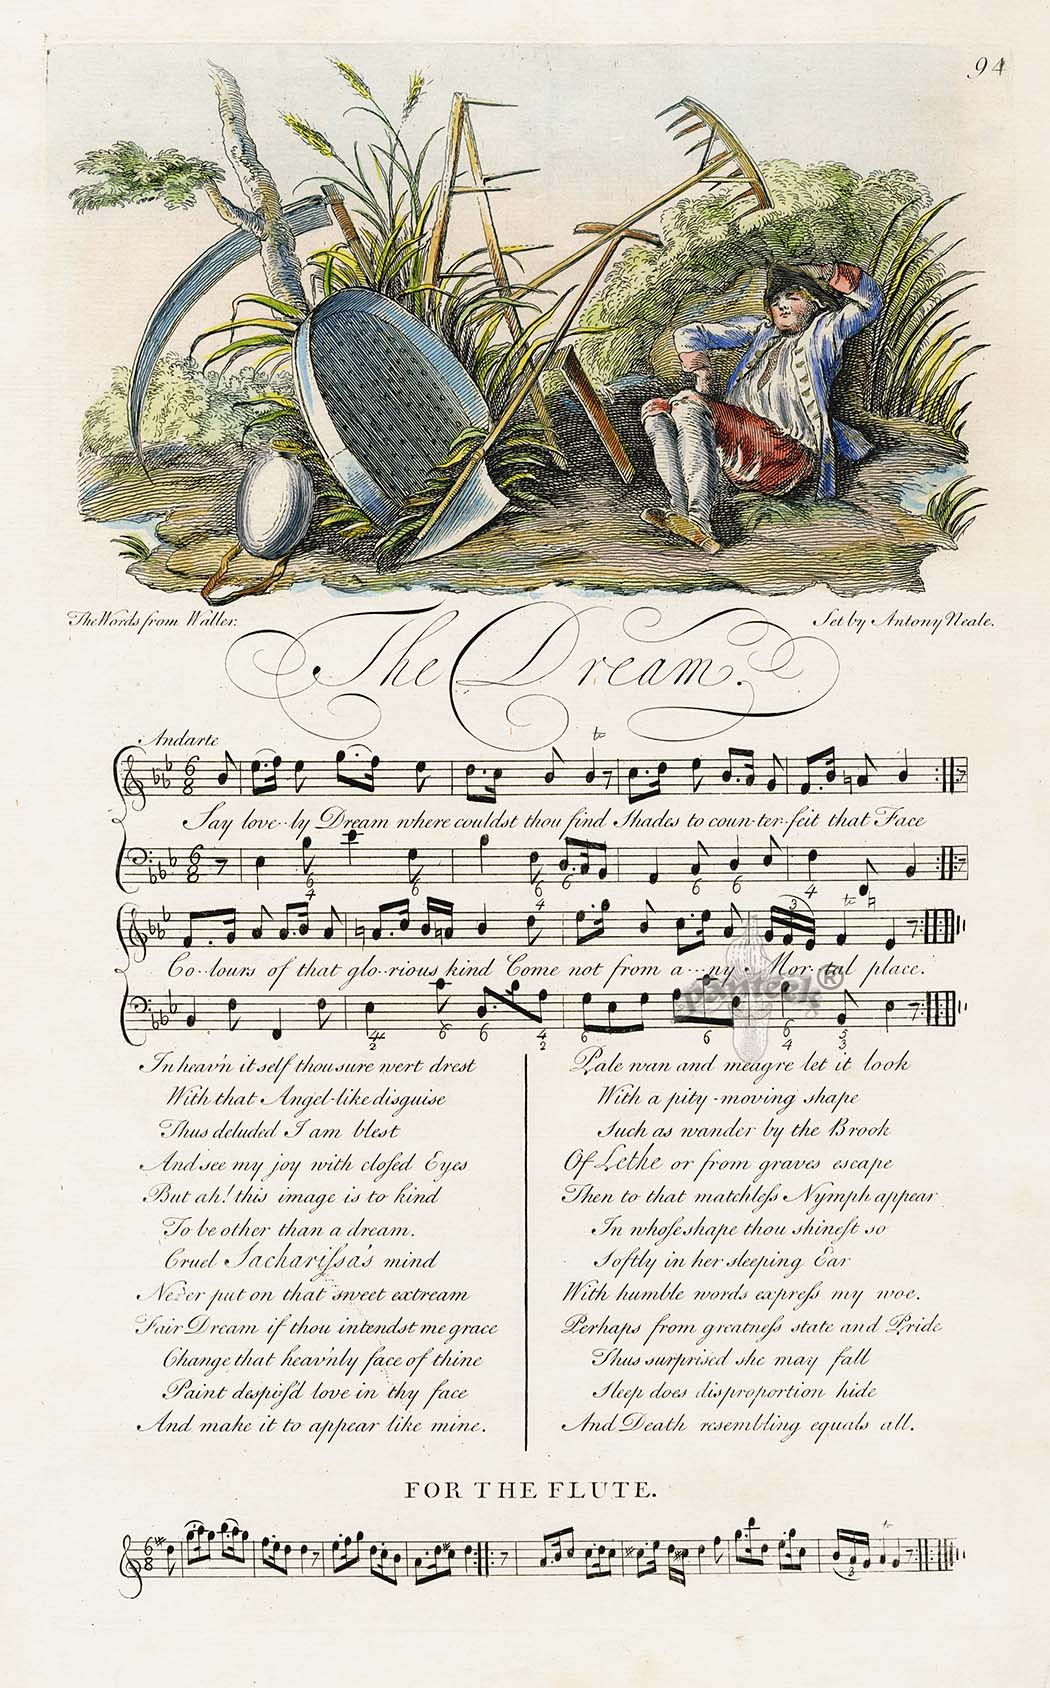 94
The Words from Waller.
Set by Antony Neale.
The Dream.
Andante
Say love--ly Dream where couldst thou find Shades to coun-ter-feit that Face
Co--lours of that glo--rious kind Come not from a---ny Mor-tal place.
panteek®
In heav'n it self thou sure wert drest
With that Angel-like disguise
Thus deluded I am blest
And see my joy with closed Eyes
But ah! this image is to kind
To be other than a dream.
Cruel Sacharissa's mind
Never put on that sweet extream
Fair Dream if thou intendst me grace
Change that heav'nly face of thine
Paint despis'd love in thy face
And make it to appear like mine.
Pale wan and meagre let it look
With a pity-moving shape
Such as wander by the Brook
Of Lethe or from graves escape
Then to that matchless Nymph appear
In whose shape thou shinest so
Softly in her sleeping Ear
With humble words express my woe.
Perhaps from greatness state and Pride
Thus surprised she may fall
Sleep does disproportion hide
And Death resembling equals all.
FOR THE FLUTE.